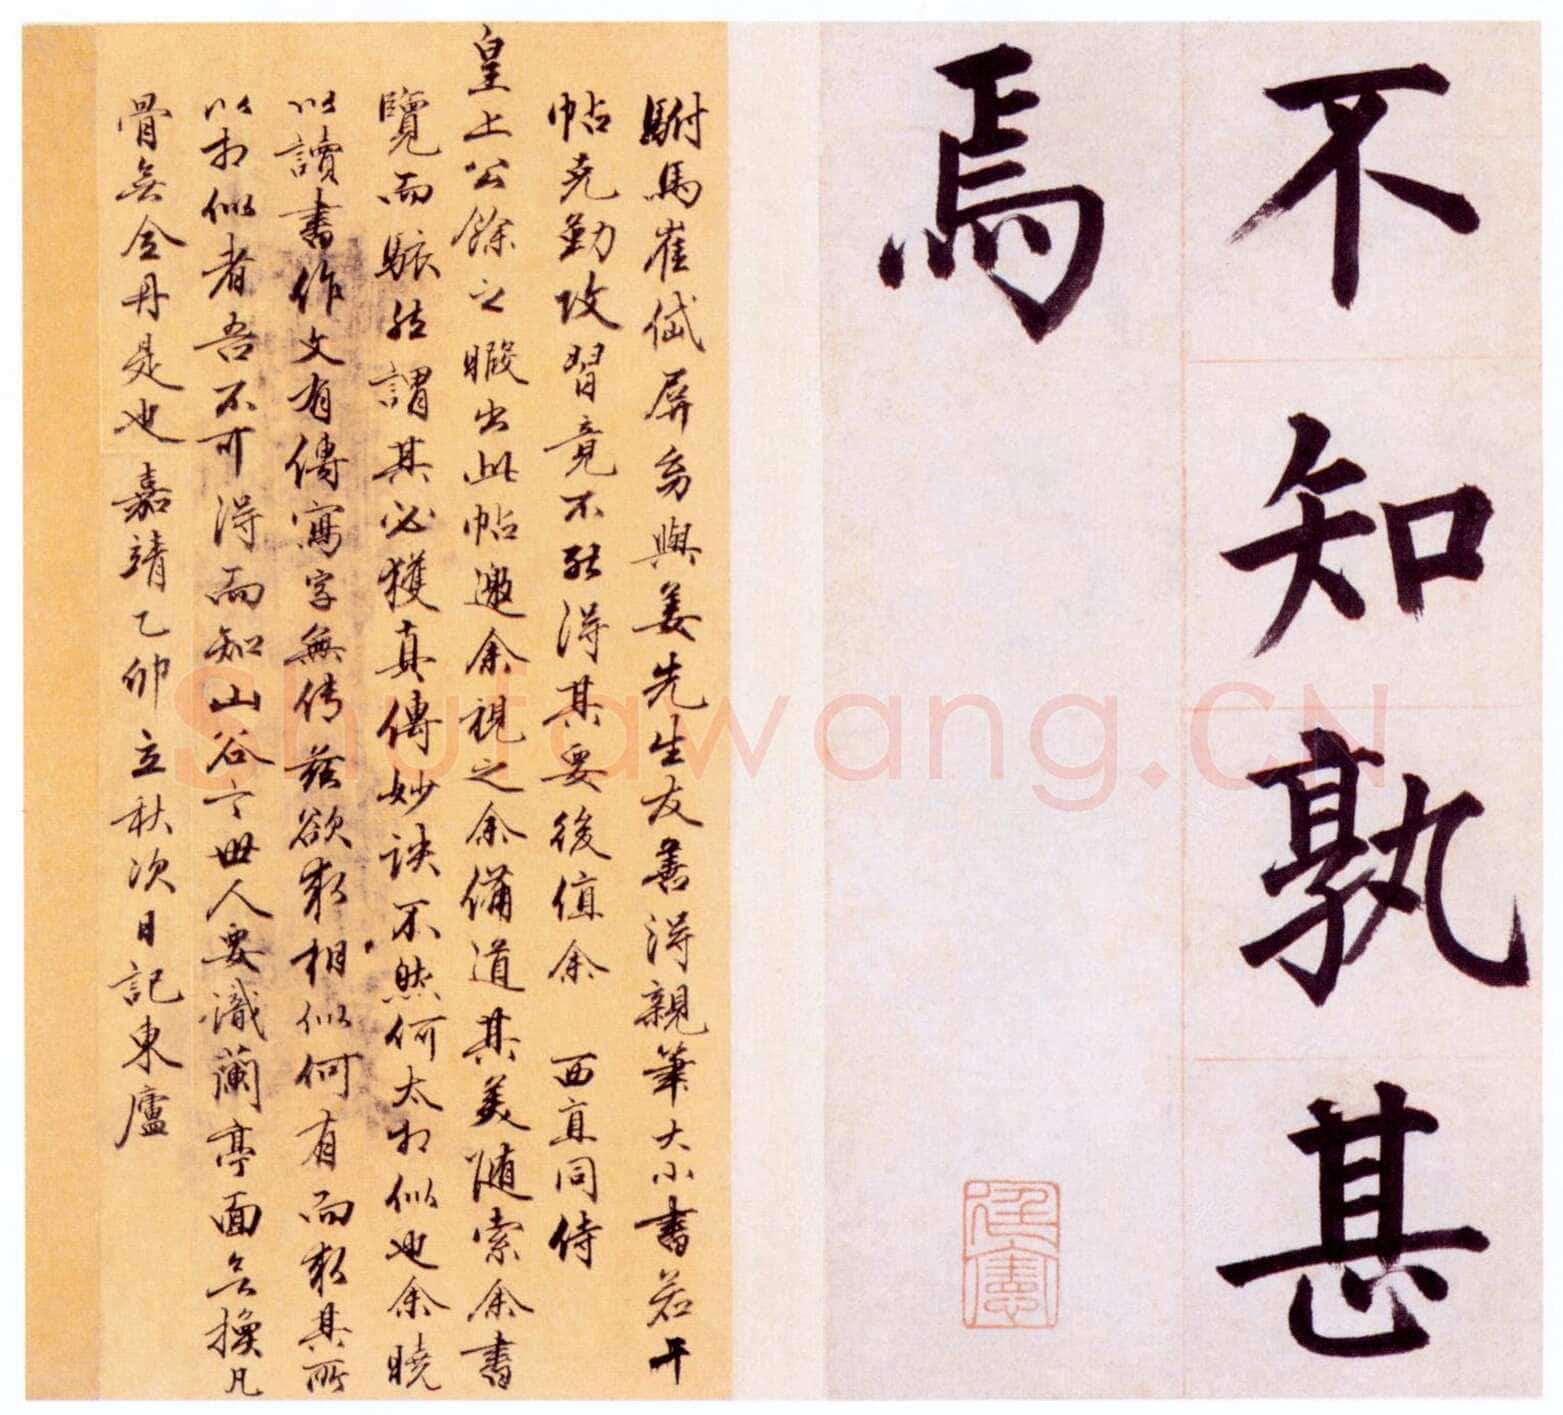 不知孰甚
焉
駙馬崔岱屏與姜先生友善得親筆大小書若干
帖克勤攻習竟不能得其要後值余 西直同侍
皇上公餘之暇出此帖邀余視之余備道其美隨索余書
覽而駭然謂其必獲真傳妙訣不然何太相似也余曉
以讀書作文有傳寫字無传茲欲求相似何有而求其所
以相似者吾不可得而知山谷言世人要識蘭亭面無換凡
骨無金丹是也嘉靖乙卯立秋次日記東廬
Shufawang.CN